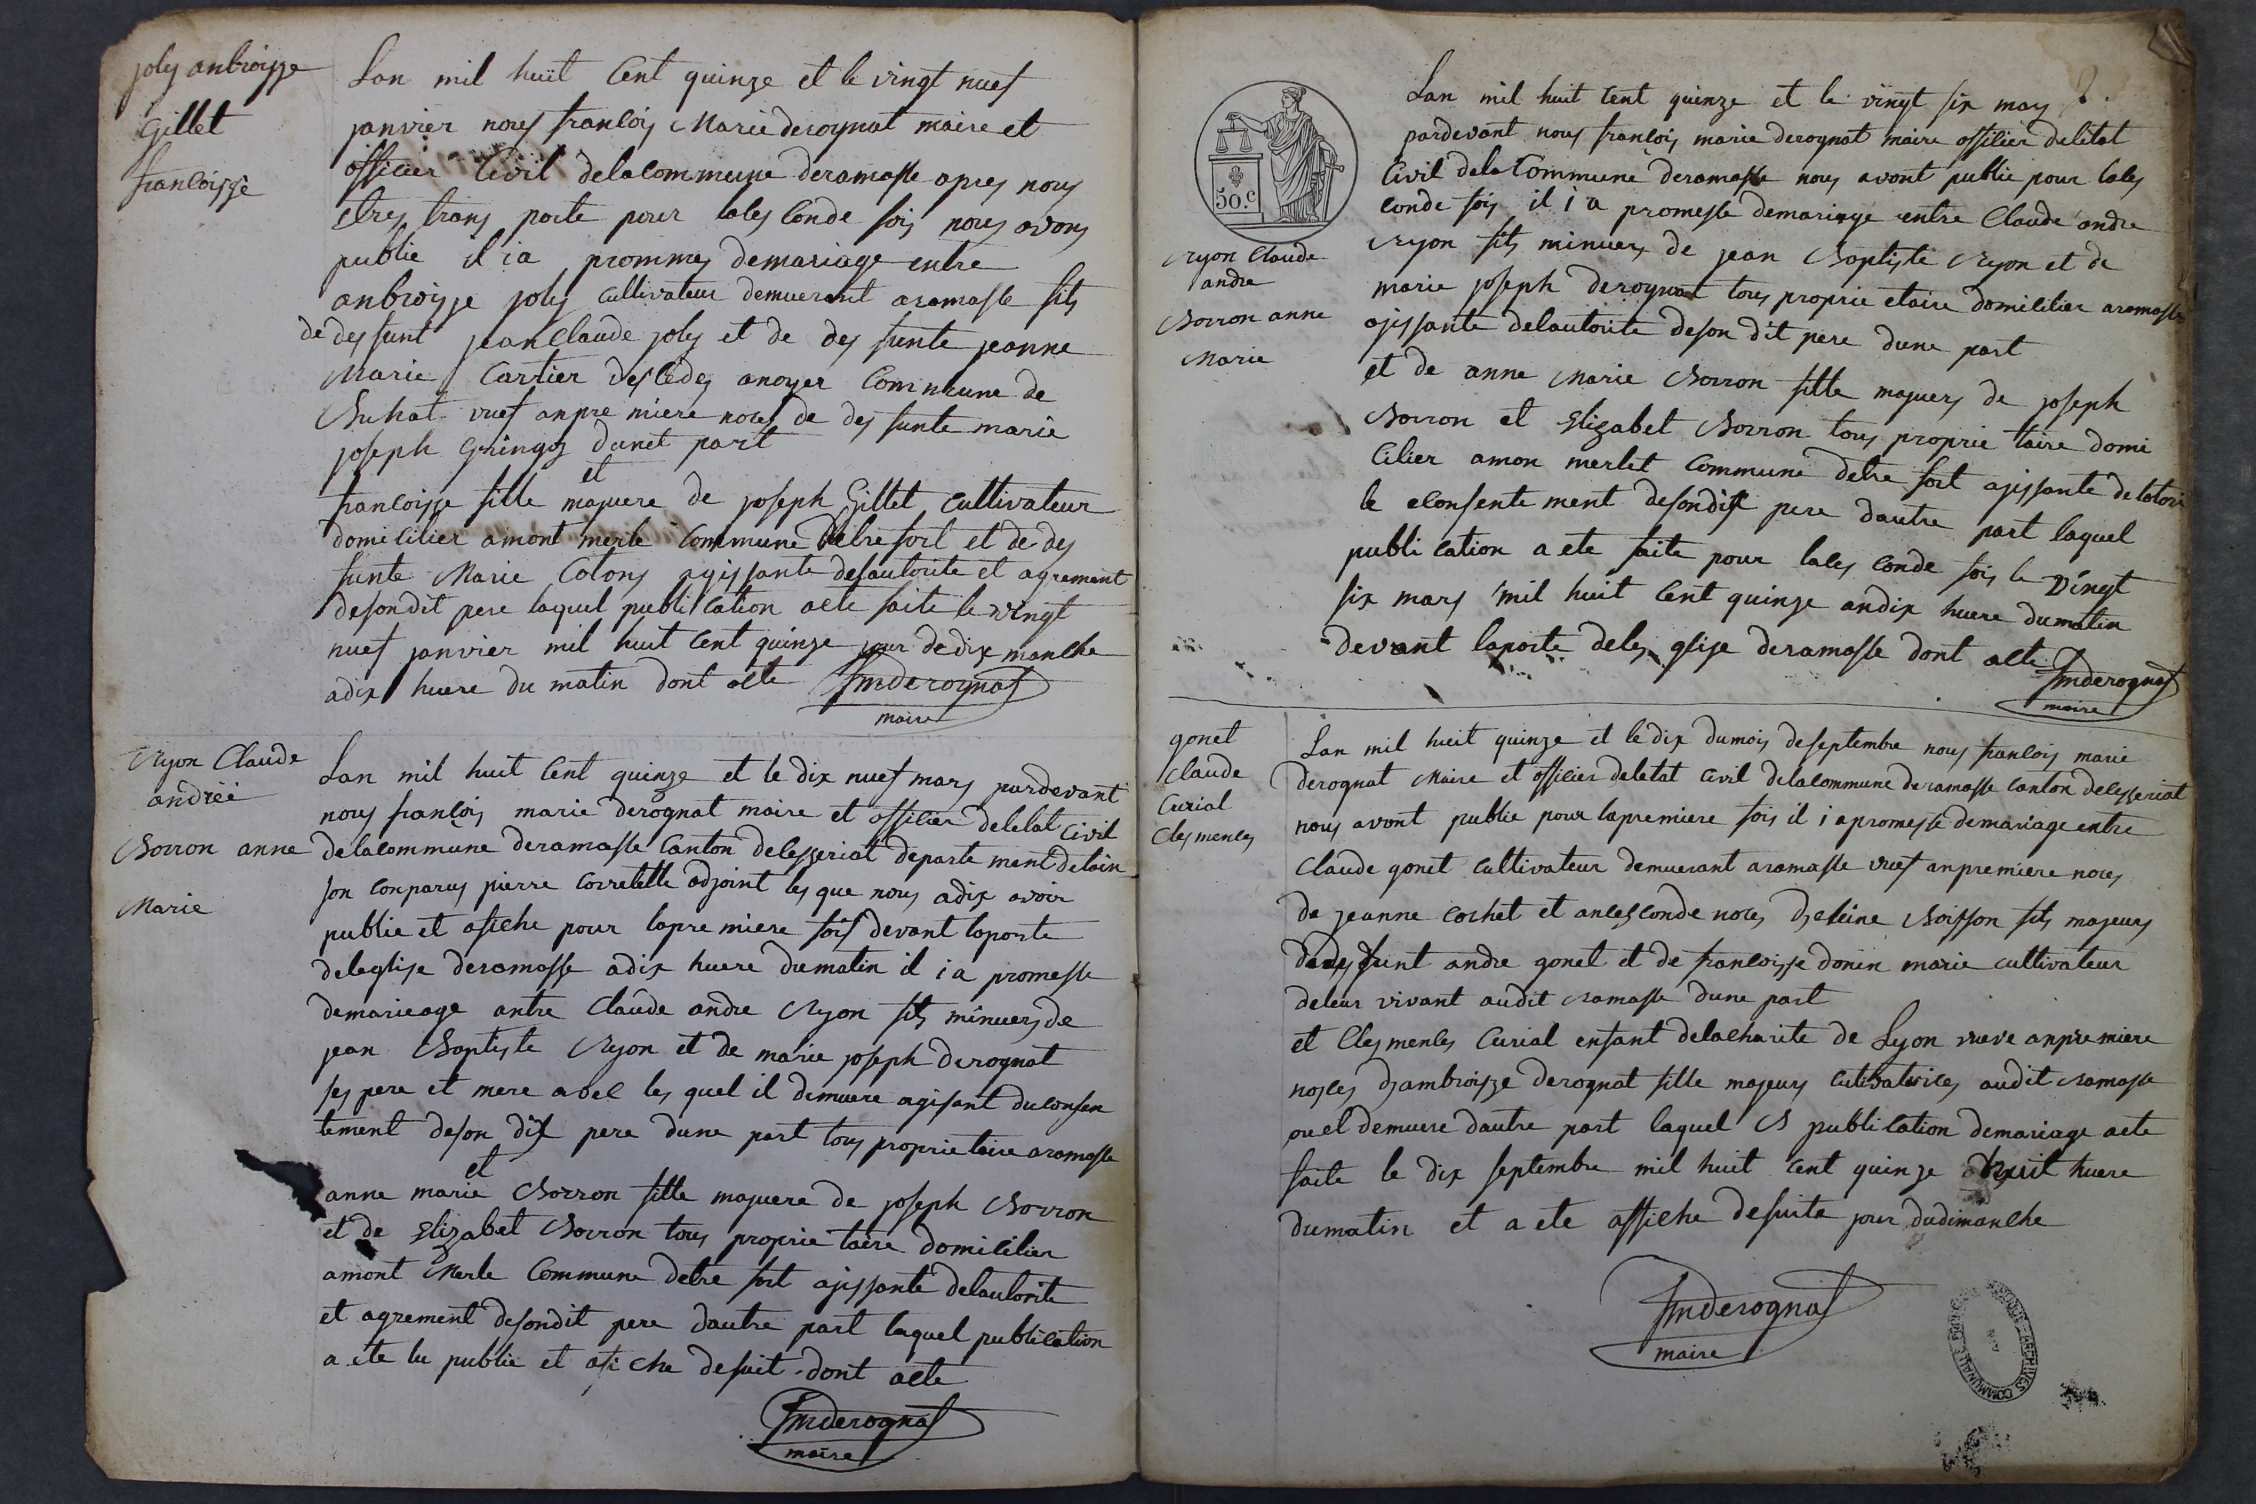 joly anbroisse
Gillet
francoisse
Lan mil huit Cent quinze et le vingt nuef
janvier nous francois Marie derognat maire et
officier Civil delacommeune deramasse apres nous
etres trans porte pour lales Conde fois nous avons
publie il ia prommes demariage entre
anbroisse joly cultivateur demuerant aramasse fils
de des funt jean Claude joly et de des funte jeanne
Marie Cartier desCedes anoyer Commeune de
Buhat vuef anpre miere noces de des funte marie
joseph Gringoz dunet part
et
francoisse fille majuere de joseph Gillet cultivateur
domicilier amont merle Commeune deltre fort et de des
funte Marie Colons agissante desautorite et agrement
desondit pere laquel publication aete faite le vingt
nuef janvier mil huit Cent quinze jour de dix manche
adix huere du matin dont acte fmderognat
maire
Ryon Claude
andréé
Borron anne
Marie
Lan mil huit Cent quinze et le dix nuef mars pardevant
nous francois marie derognat maire et officier deletat Civil
delacommune deramasse Canton deCeyzeriat departe ment delain
son Conparus pierre Corretelle adjoint les que nous adix avoir
publie et afiche pour lapre miere fois devant laporte
deleglise deramasse adix huere dumatin il ia promesse
demarieage antre Claude andre Ryon fils minuers de
jean Baptiste Ryon et de marie joseph derognat
ses pere et mere avec les quel il demuere agisant duconsen
tement deson dix pere dune part tous proprietaire aramasse
et
anne marie Borron fille majuere de joseph Borron
et de Elizabet Borron tous proprie taire domicilier
amont Merle Commune detre fort ajissante delautorite
et agrement desondit pere dautre part laquel publication
a ete lu publie et afi che desuit dont acte
fmderognat
maire
50.c
Ryon Claude
andre
Borron anne
Marie
Lan mil huit Cent quinze et le vingt six mars
pardevant nous francois marie derognat maire officier deletat
Civil dela Commune deramasse nous avont publie pour lales
conde fois il i a promesse demariage entre Claude andre
Ryon fils minuers de jean Baptiste Ryon et de
marie joseph derognat tous proprie etaire domicilier aramasse
ajissante delautorite deson dit pere dune part
et de anne Marie Borron fille majuers de joseph
Borron et Elizabet Borron tous proprie taire domi
Cilier amon merlet Commune detre fort ajissante de lotori
le Consente ment desondix pere dautre part laquel
publication a ete faite pour lales conde fois le vingt
six mars mil huit Cent quinze andix huere dumatin
devant laporte deles glise deramasse dont acte
fmderognat
maire
gonet
Claude
Curial
Clesmences
Lan mil hueit quinze et le dix dumois deseptembre nous francois marie
derognat Maire et officier deletat Civil delacommune deramasse Canton deCeyzeriat
nous avont publie pour lapremiere fois il i apromesse demariage entre
Claude gonet cultivateur demuerant aramasse vuef anpremiere noces
de jeanne Cochet et ancesconde noces Boisson fils majeurs
dedes funt andre gonet et de francoisse donin marie cultivateur
deleur vivant audit ramasse dune part
et Clesmences Curial enfant delacharite de Lyon vueve anpremiere
nosces dambroisze derognat fille majeurs cultivatrices audit ramasse
ouel demuere dautre part laquel publication demariage aete
faite le dix septembre mil huit Cent quinze huere
dumatin et a ete affiche desuite jour dudimanche
fmderognat
maire
ARCHIVES COMMUNALES